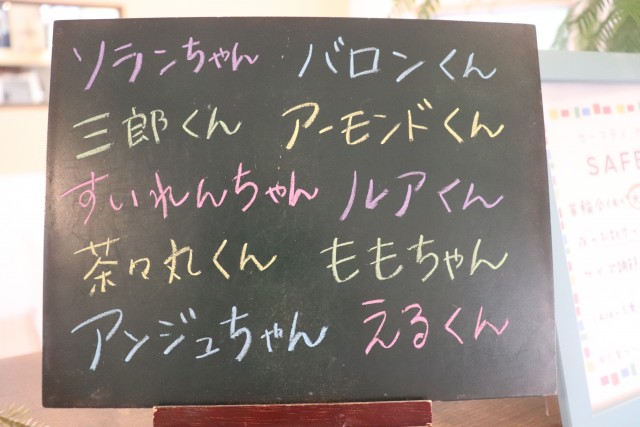 ソランちゃん バロンくん
三郎くん アーモンドくん
すいれんちゃん ルアくん
茶々丸くん ももちゃん
アンジュちゃん えるくん
SAFE